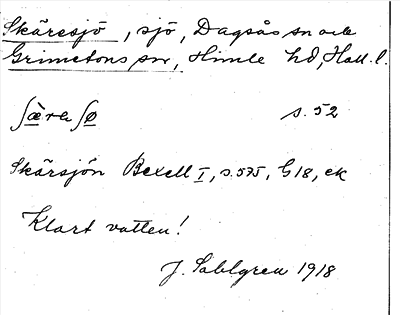 Skäresjö, sjö, Dagsås sn och
Grimetons sn, Himle hd, Hall. l.
ʃæ̀re ʃø s. 52
Skärsjön Bexell I, s. 575, G 18, ek
Klart vatten!
J. Sahlgren 1918